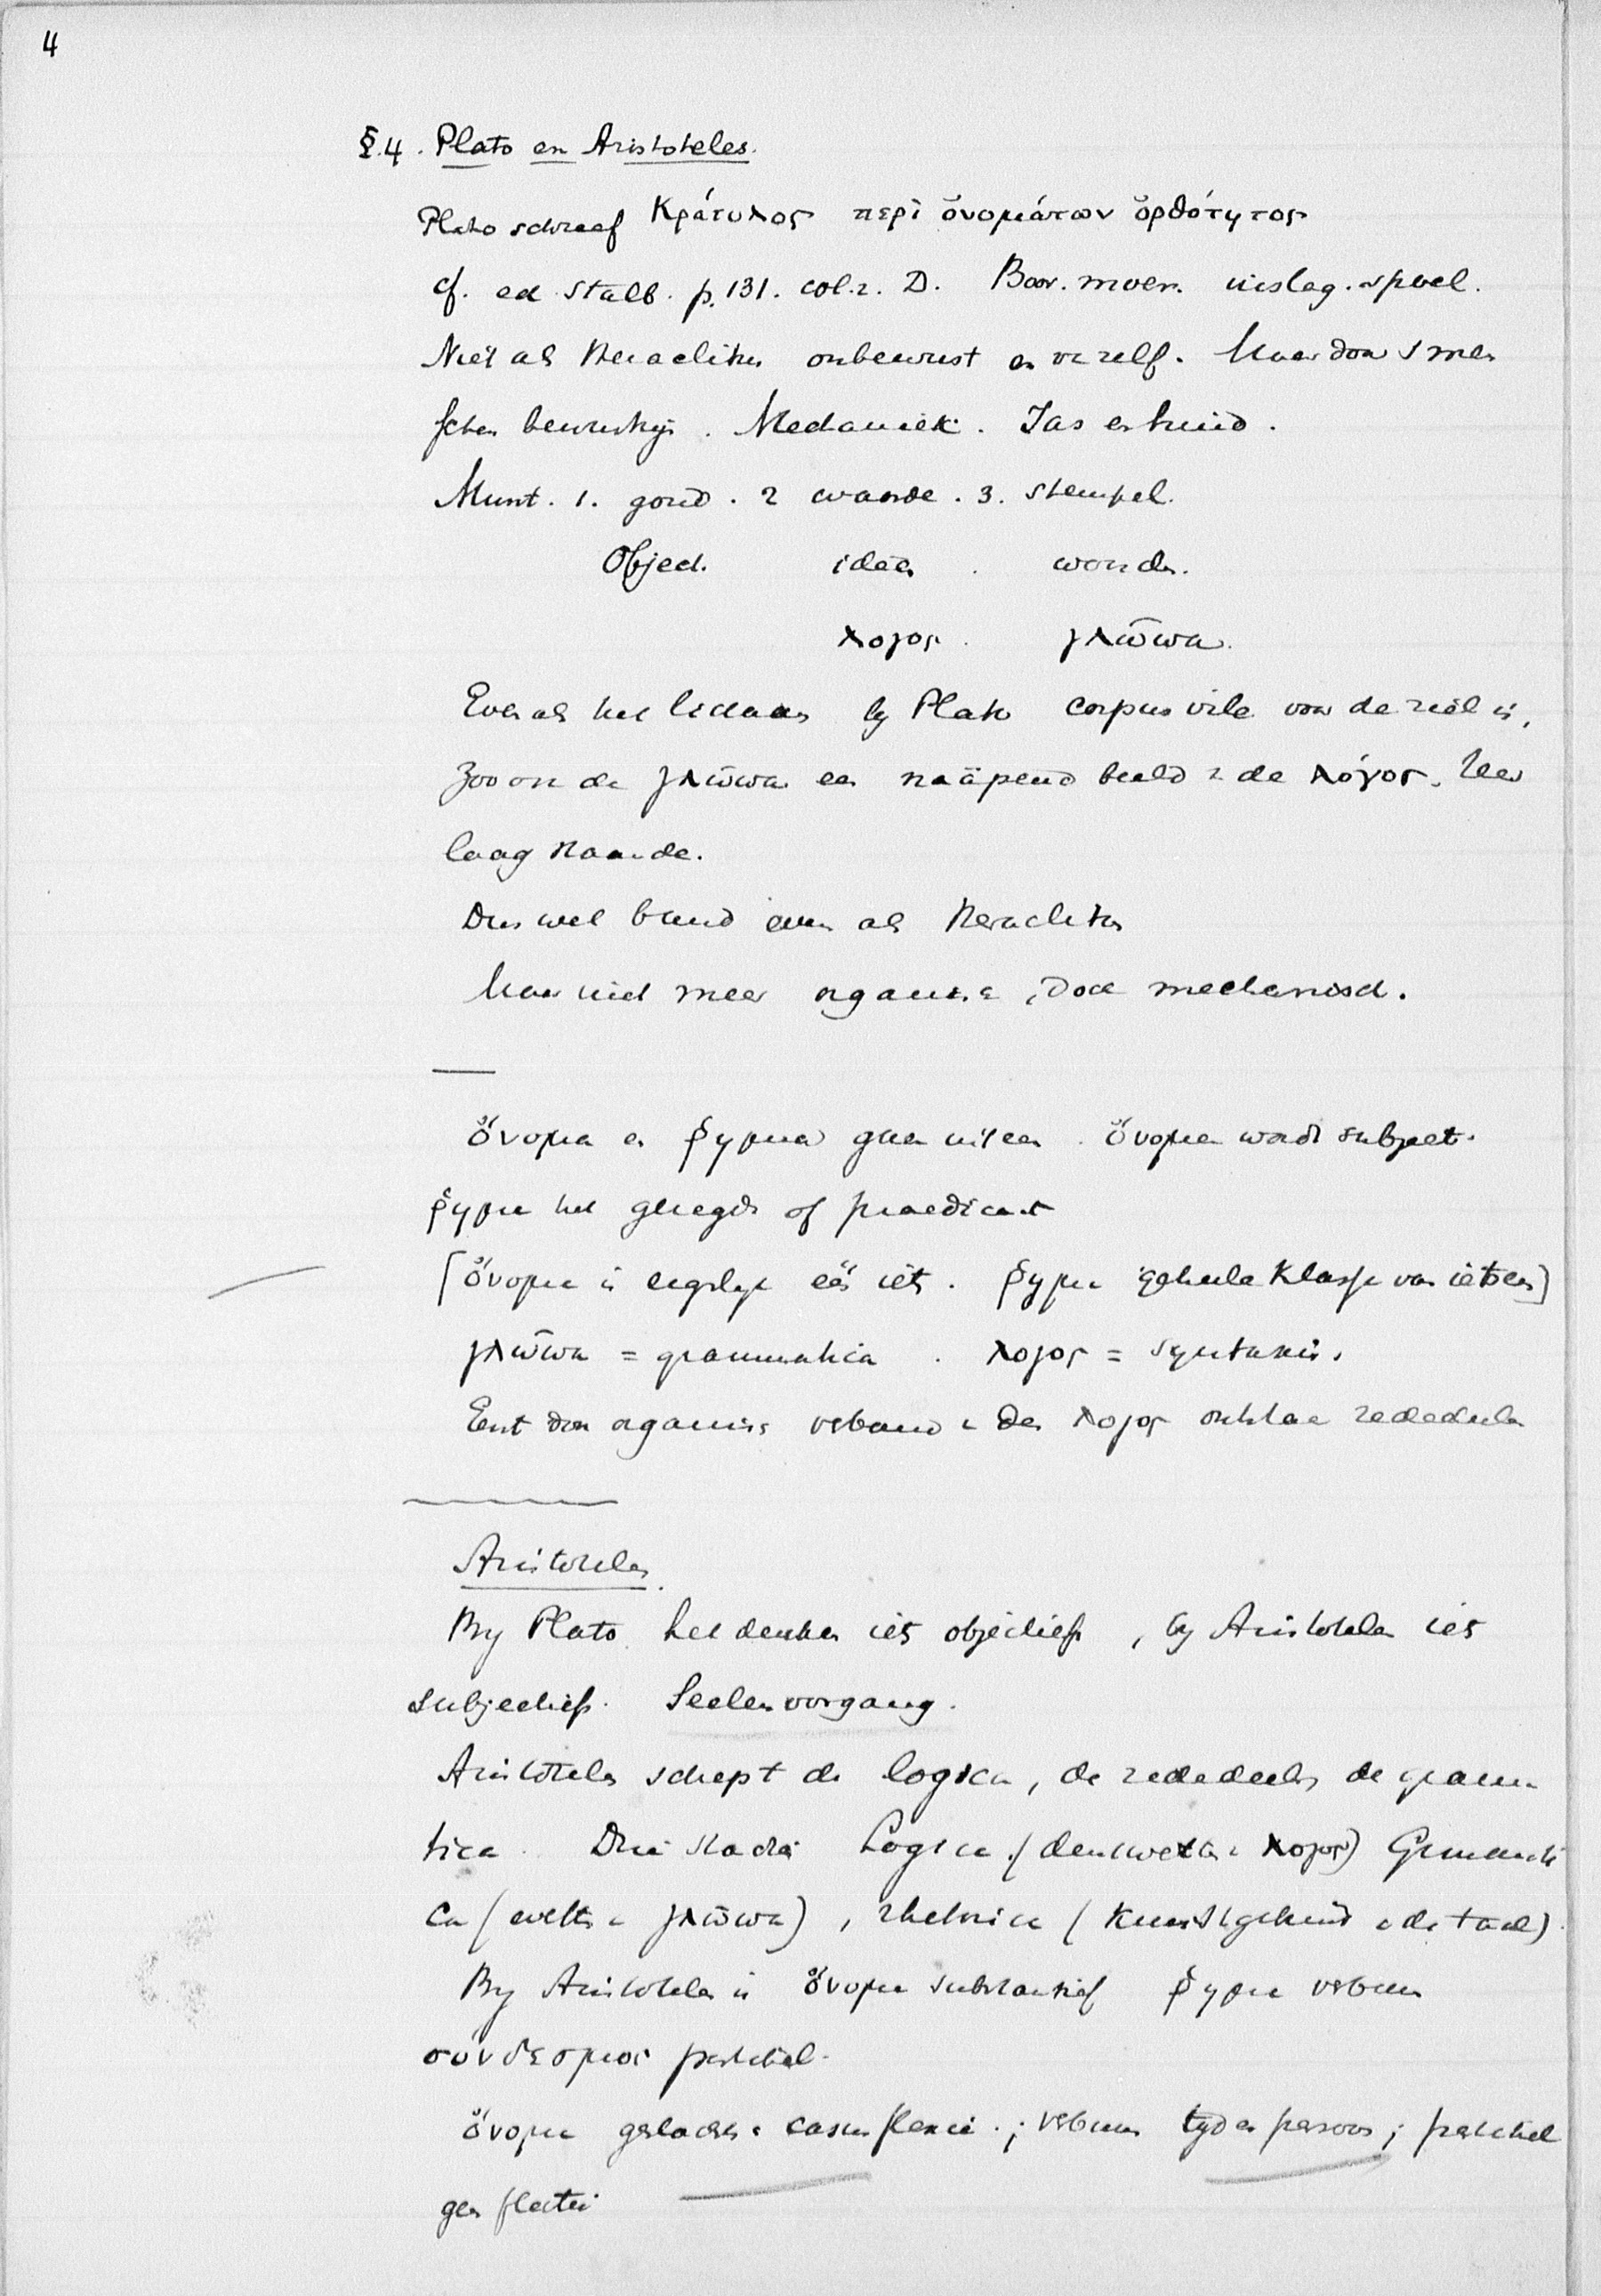 4
§.4. Plato en Aristoteles.
Plato schreef Κράτυλος περὶ ὀνομάτων ὀρθότητος
cf. ed Stalb. p. 131. col. 2. D. Boor. inslag. spoel.
Niet als Heraclitus onbewust en vz zelf. Maar door s men
schen bewustzijn. Mechaniek. Jas en huid.
Munt. 1. goud. 2 waarde. 3. stempel.
Object. idee. woorden.
λογος. γλῶσσα.
Even als het lichaam by Plato corpus vile voor de ziel is,
Zoo ook de γλῶσσα een naäpend beeld v de λόγος. Zeer
laag staande.
Dus wel band even als Heraclitus
Maar niet meer organisc, doch mechanisch.
ὄνομα en ῥημα gaan uiteen. ὄνομα wordt subject.
ῥημα het gezegde of praedicaat
[ὄνομα is eigelyk één iets. ῥημα geheele Klasse van ietsen]
γλῶσσα = grammatica. λογος = syntaxis.
Eerst door organis verband v den λογος ontstaan rededeelen
Aristoteles.
By Plato het denken iets objectiefs, by Aristoteles iets
subjectiefs. Seelenvorgang.
Aristoteles schept de logica, de rededeelen de gramma
tica. Drie stadia Logica (denkwetten v λογος) Grammati
ca (wetten v γλῶσσα), rhetorica (Kunstgebruik v de taal).
By Aristoteles is ὄνομα substantief ῥημα verbum
σύνδεσμος partikel.
ὄνομα geslacht en casus flexie.; verbum tyd en persoon; partikel
geen flectie